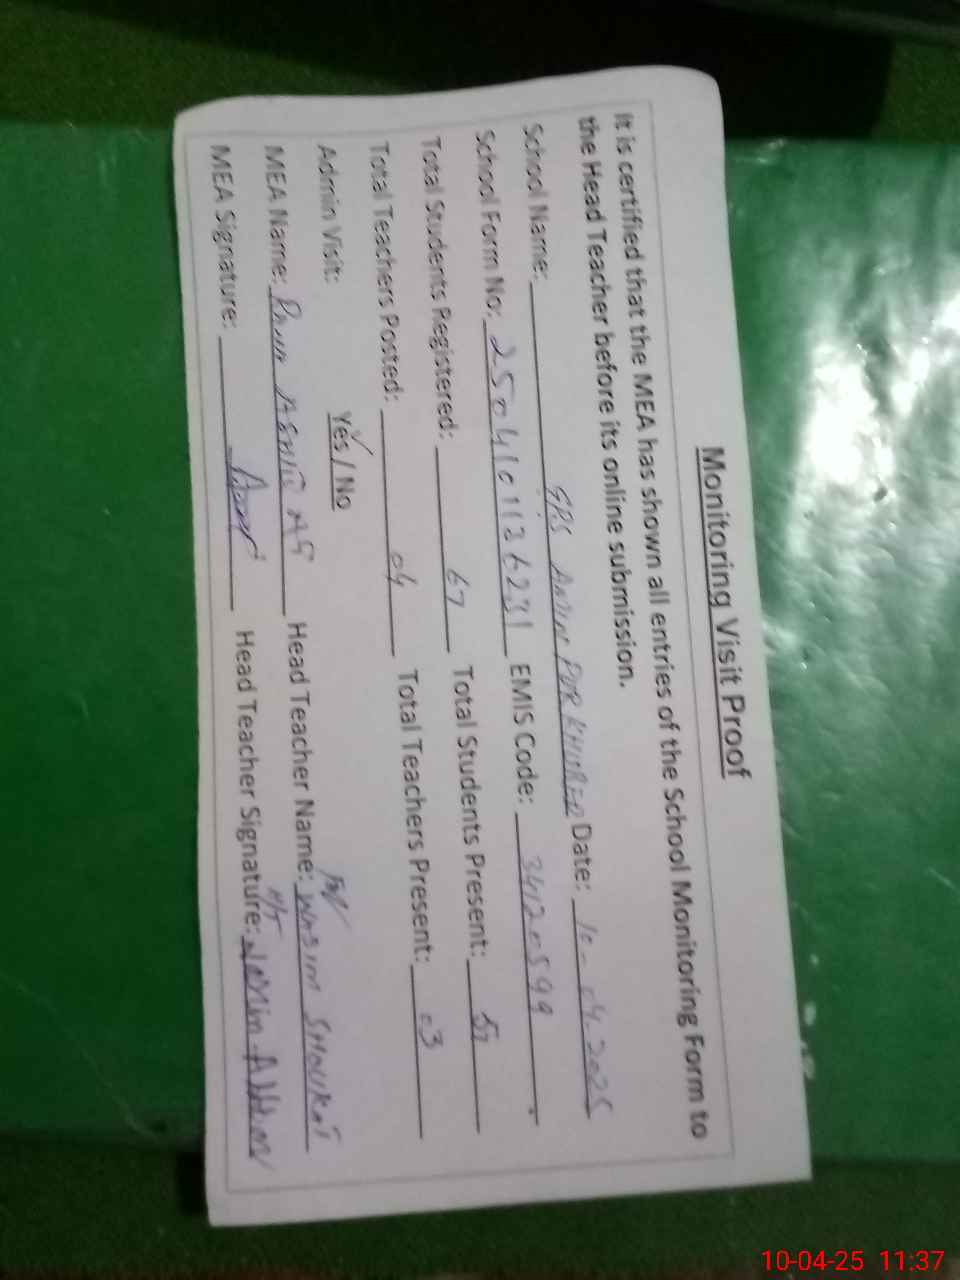 Monitoring Visit Proof
It is certified that the MEA has shown all entries of the School Monitoring Form to
the Head Teacher before its online submission.
School Name: GPS AMIN PUR KHURED Date: 10-04-2025
School Form No: 2504101126231 EMIS Code: 34120599
Total Students Registered: 67 Total Students Present: 57
Total Teachers Posted: 04 Total Teachers Present: 03
Admin Visit: Yes / No
MEA Name: Head Teacher Name: WASIM SHOUKAT
MEA Signature: Head Teacher Signature:
10-04-25 11:37